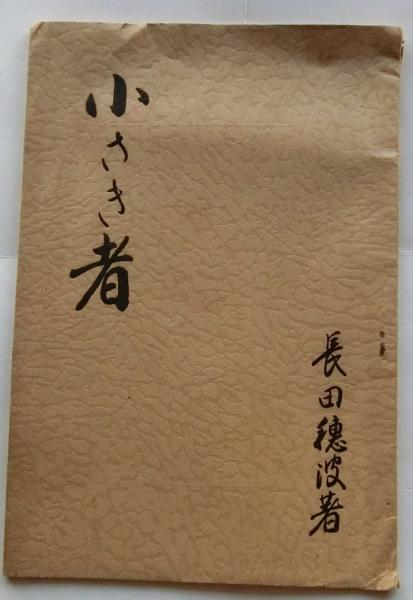 小さき者
長田穂波著